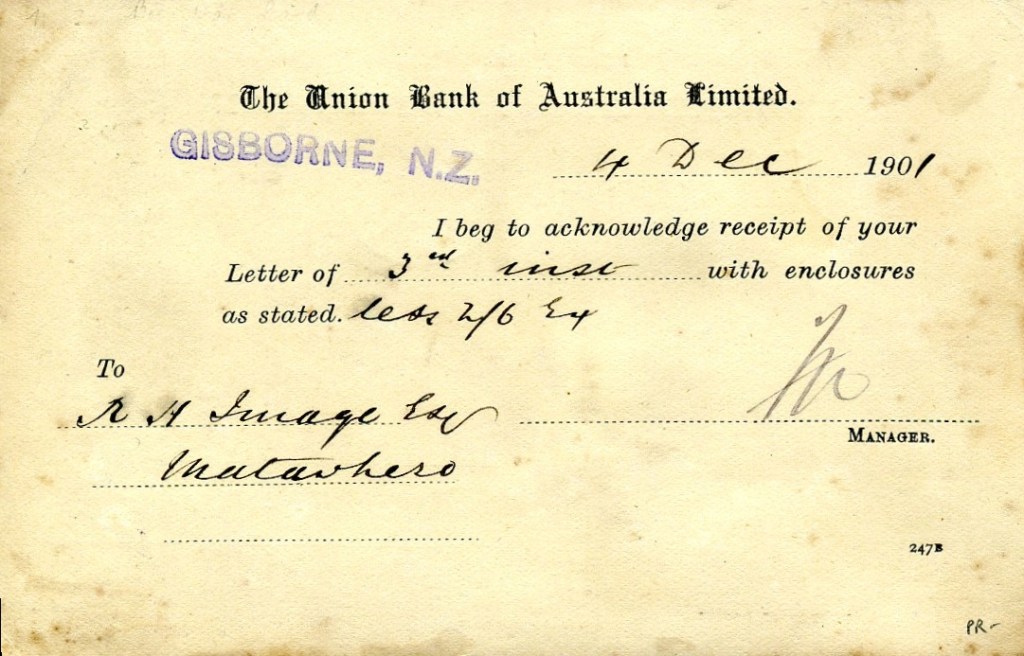 The Union Bank of Australia Limited.
GISBORNE, N.Z.
4 Dec 1901
I beg to acknowledge receipt of your
Letter of 3rd inst with enclosures
as stated. less 2/6 Ex
To
R H Image Esq
MANAGER.
Matawhero
247B
PR-